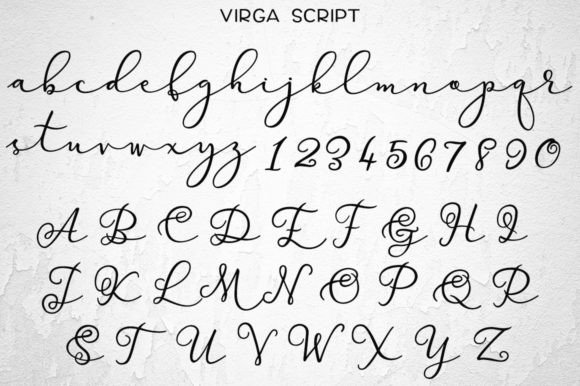 VIRGA SCRIPT
abcdefghijklmnopqr
stuvwxyz 1234567890
A B C D E F G H I
J K L M N O P Q R
S T U V W X Y Z